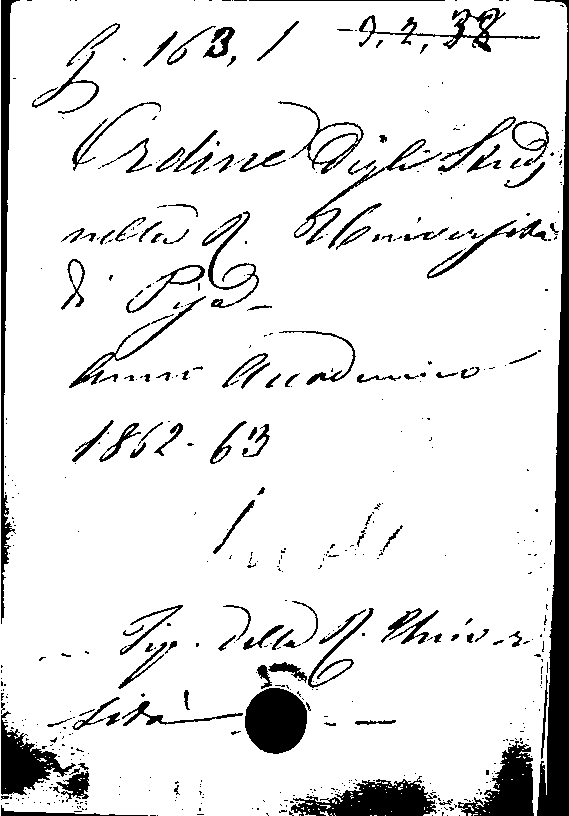 G. 163, 1 9, 2, 38
Ordine degli Studj
nella R. Università
di Pisa
Anno Accademico
1862-63
Tip. della R. Univer
sità